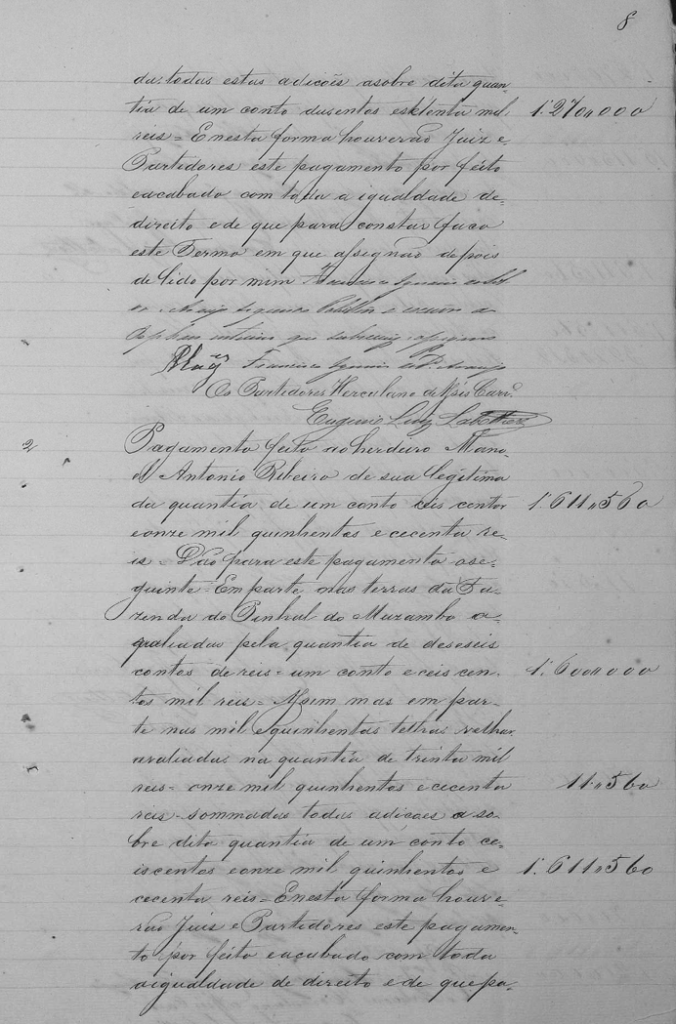 8
da: todas estas adicões asobre dita quan-
tia de um conto dusentos esktenta mil 1:270,,000
reis = E nesta forma houverão Juiz e
Partidores este pagamento por feito
eacabado com toda a igualdade de
direito e de que para constar faco
este Termo em que assignão depois
de lido por mim Francisco Ignacio
de Araujo segundo Tabellião e escrivão de
Orphaos interino que escrevi e assigno
Francisco Ignacio de Araujo
Os Partedores Herculano de Assis Carv.º
Eugenio Luiz
2 Pagamento feito ao herdeiro Mano-
el Antonio Ribeiro de sua legitima
da quantia de um conto ceis centos 1:611,,560
eonze mil quinhentos e cecenta re-
is = Dão para este pagamento ose-
guinte Em parte nas terras da Fa-
zenda do Pinhal do Muzambo a-
valiadas pela quantia de deseseis
contos de reis - um conto e ceis cen- 1:600,,000
tos mil reis = Assim mas em par-
te nas mil equinhentas telhas velhas
avaliadas na quantia de trinta mil
reis - onze mil quinhentos e cecenta 11,,560
reis - sommadas todas adicoes a so-
bre dita quantia de um conto ce-
iscentos eonze mil quinhentos e 1:611,,560
cecenta reis = E nesta forma houve-
rão Juis e Partidores este pagamen-
to por feito eacabado com toda
aigualdade de direito e de que pa-